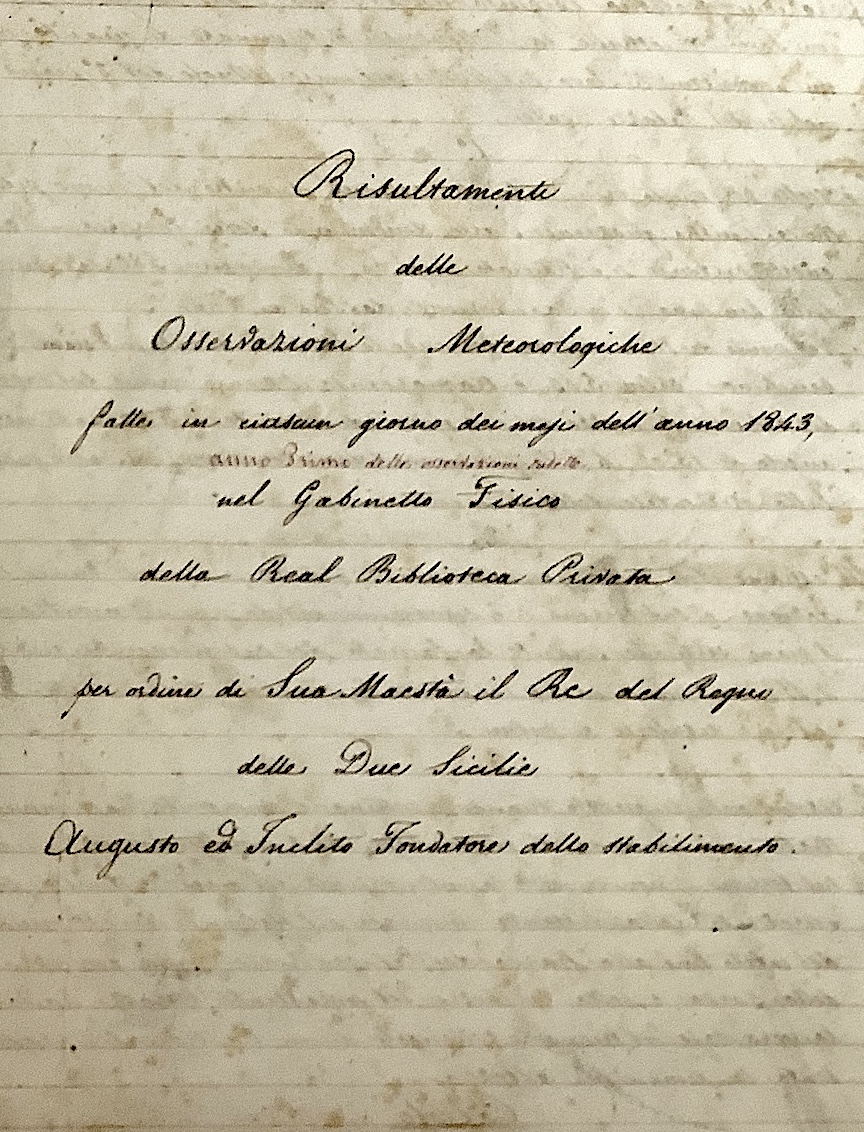 Risultamenti
delle
Osservazioni Meteorologiche
fatte in ciascun giorno dei mesi dell'anno 1843,
anno Primo delle osservazioni sudette
nel Gabinetto Fisico
della Real Biblioteca Privata
per ordine di Sua Maestà il Re del Regno
delle Due Sicilie
Augusto ed Inclito Fondatore dello stabilimento.